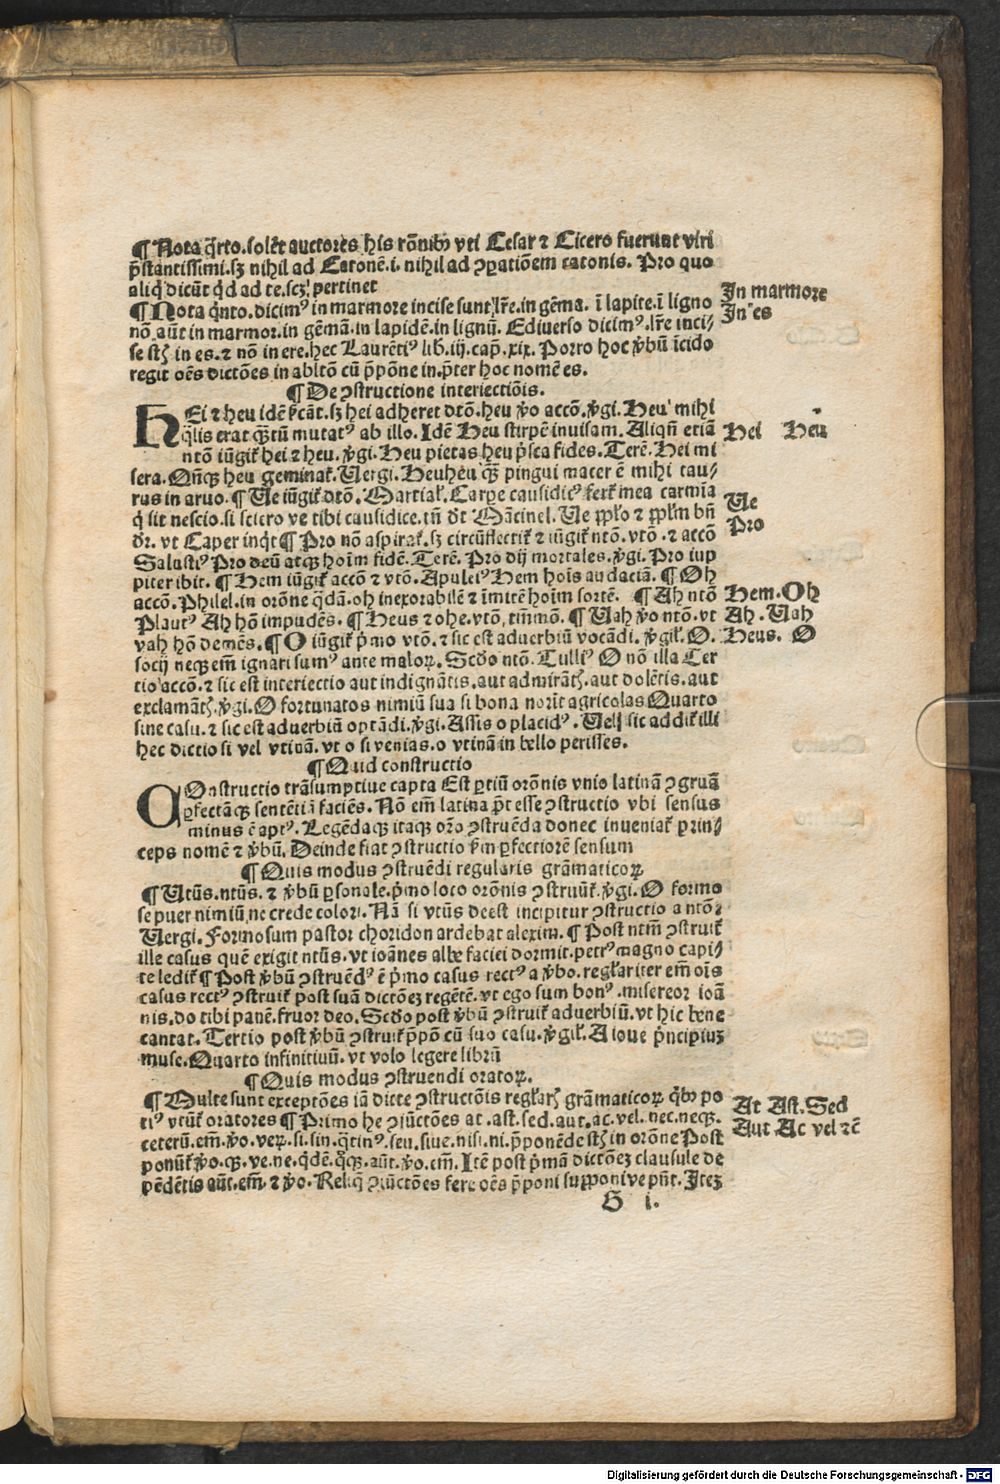 ¶ Nota q̃rto. solẽt auctores his rõnibꝰ vti Cesar ⁊ Cicero fuerunt viri
p̃stantissimi. sꝫ nihil ad Catonẽ .i. nihil ad ꝯꝑatiõem catonis. Pro quo
aliq̃ dicũt qd ad te. scꝫ pertinet
¶ Nota q̃nto. dicimꝰ in marmore incise sunt lr̃e. in gẽma. ĩ lapite. ĩ ligno
nõ aũt in marmor. in gẽmã. in lapidẽ. in lignũ. Ediuerso dicimꝰ. lr̃e inci⸗
se st̃ in es. ⁊ nõ in ere. hec Laurẽtiꝰ lib. iij. cap. xix. Porro hoc v̾bũ ĩcido
regit oẽs dictões in abltõ cũ p̃põne in. p̃ter hoc nomẽ es.
In marmore
In es
¶ De ꝯstructione interiectiõis.
HEi ⁊ heu idẽ s̃cãt. sꝫ hei adheret dtõ. heu v̾o accõ. v̾gi. Heu mihi
q̃lis erat q̃ꝫtũ mutatꝰ ab illo. Idẽ Heu stirpẽ inuisam. Aliqñ etiã
ntõ iũgit᷑ hei ⁊ heu. v̾gi. Heu pietas heu p̃sca fides. Terẽ. Hei mi
sera. Qñqꝫ heu geminat᷑. Uergi. Heuheu q̃ꝫ pingui macer ẽ mihi tau⸗
rus in aruo. ¶ Ue iũgit᷑ dtõ. Martial᷑. Carpe causidicꝰ fert᷑ mea carmĩa
q̃ sit nescio. si sciero ve tibi causidice. tñ dt᷑ Mãcinel. Ue ꝓpl᷑o ⁊ ꝓpl᷑m bñ
dr̃. vt Caper inqt᷑ ¶ Pro nõ aspirat᷑. sꝫ circũflectit᷑ ⁊ iũgit᷑ ntõ. vtõ. ⁊ accõ
Salustiꝰ Pro deũ atqꝫ hoĩm fidẽ. Terẽ. Pro dij mortales. v̾gi. Pro iup
piter ibit. ¶ Hem iũgit᷑ accõ ⁊ vtõ. Apuleiꝰ Hem hoĩs audaciã. ¶ Oh
accõ. Philel. in orõne q̃dã. oh inexorabilẽ ⁊ ĩmitẽ hoĩm sortẽ. ¶ Ah ntõ
Plautꝰ Ah hõ impudẽs. ¶ Heus ⁊ ohe. vtõ, tm̃mõ. ¶ Uah v̾o ntõ. vt
vah hõ demẽs. ¶ O iũgit᷑ p̾mo vtõ. ⁊ sic est aduerbiũ vocãdi. v̾gil᷑. O.
socij neqꝫ em̃ ignari sumꝰ ante maloꝝ. Scd̾o ntõ. Tulliꝰ O nõ illa Ter
tio accõ. ⁊ sic est interiectio aut indignãtis. aut admirãt̃. aut dolẽtis. aut
exclamãt̃. v̾gi. O fortunatos nimiũ sua si bona norĩt agricolas Quarto
sine casu. ⁊ sic est aduerbiũ optãdi. v̾gi. Assis o placidꝰ. Uel sic addit᷑ illi
hec dictio si vel vtinã. vt o si venias. o vtinã in bello perisses.
Hei Heu
Ue
Pro
Hem. Oh
Ah. Uah
Heus. O
¶ Quid constructio
COnstructio trãsumptiue capta Est ꝑtiũ orõnis vnio latinã ꝯgruã
ꝑfectãqꝫ sentẽtiã faciẽs. Nõ em̃ latina põt esse ꝯstructio vbi sensus
minus ẽ aptꝰ. Legẽdaqꝫ itaqꝫ orõ ꝯstruẽda donec inueniat᷑ prin⸗
ceps nomẽ ⁊ v̾bũ. Deinde fiat ꝯstructio s̃m ꝑfectiorẽ sensum
¶ Quis modus ꝯstruẽdi regularis grãmaticoꝝ
¶ Utũs. ntũs. ⁊ v̾bũ ꝑsonale. p̾mo loco orõnis ꝯstruũt᷑. v̾gi. O formo
se puer nimiũ ne crede colori. Nã si vtũs deest incipitur ꝯstructio a ntõ.
Uergi. Formosum pastor choridon ardebat alexim. ¶ Post ntm̃ ꝯstruit᷑
ille casus quẽ exigit ntũs. vt ioãnes albe faciei dormit. petrꝰ magno capi⸗
te ledit᷑ ¶ Post v̾bũ ꝯstruẽdꝰ ẽ p̾mo casus rectꝰ a v̾bo. regl᷑ariter em̃ oĩs
casus rectꝰ ꝯstruit᷑ post suã dictõeꝫ regẽtẽ. vt ego sum bonꝰ. misereor ioã
nis. do tibi panẽ. fruor deo. Scd̾o post v̾bũ ꝯstruit᷑ aduerbiũ. vt hic bene
cantat. Tertio post v̾bũ ꝯstruit᷑ p̃põ cũ suo casu. v̾gil᷑. A ioue p̾ncipiuꝫ
muse. Quarto infinitiuũ. vt volo legere librũ
¶ Quis modus ꝯstruendi oratoꝝ.
¶ Multe sunt exceptões iã dicte ꝯstructõis regl᷑ar̃ grãmaticoꝝ q̃bꝰ po
tiꝰ vtũt᷑ oratores ¶ Primo he ꝯiũctões at. ast. sed. aut. ac. vel. nec. neqꝫ.
ceterũ. em̃. v̾o. veꝝ. si. sin. q̃tinꝰ. seu. siue. nisi. ni. p̃ponẽde st̃ in orõne Post
ponũt᷑ v̾o. qꝫ. ve. ne. q̃dẽ. q̃qꝫ. aũt. v̾o. em̃. Itẽ post p̾mã dictõeꝫ clausule de
pẽdẽtis aũt. em̃. ⁊ v̾o. Reliq̃ ꝯiũctões fere oẽs p̃poni supponive pñt. Iteꝫ
At Ast. Sed
Aut Ac vel ⁊c̃
G i.
Digitalisierung gefördert durch die Deutsche Forschungsgemeinschaft - DFG